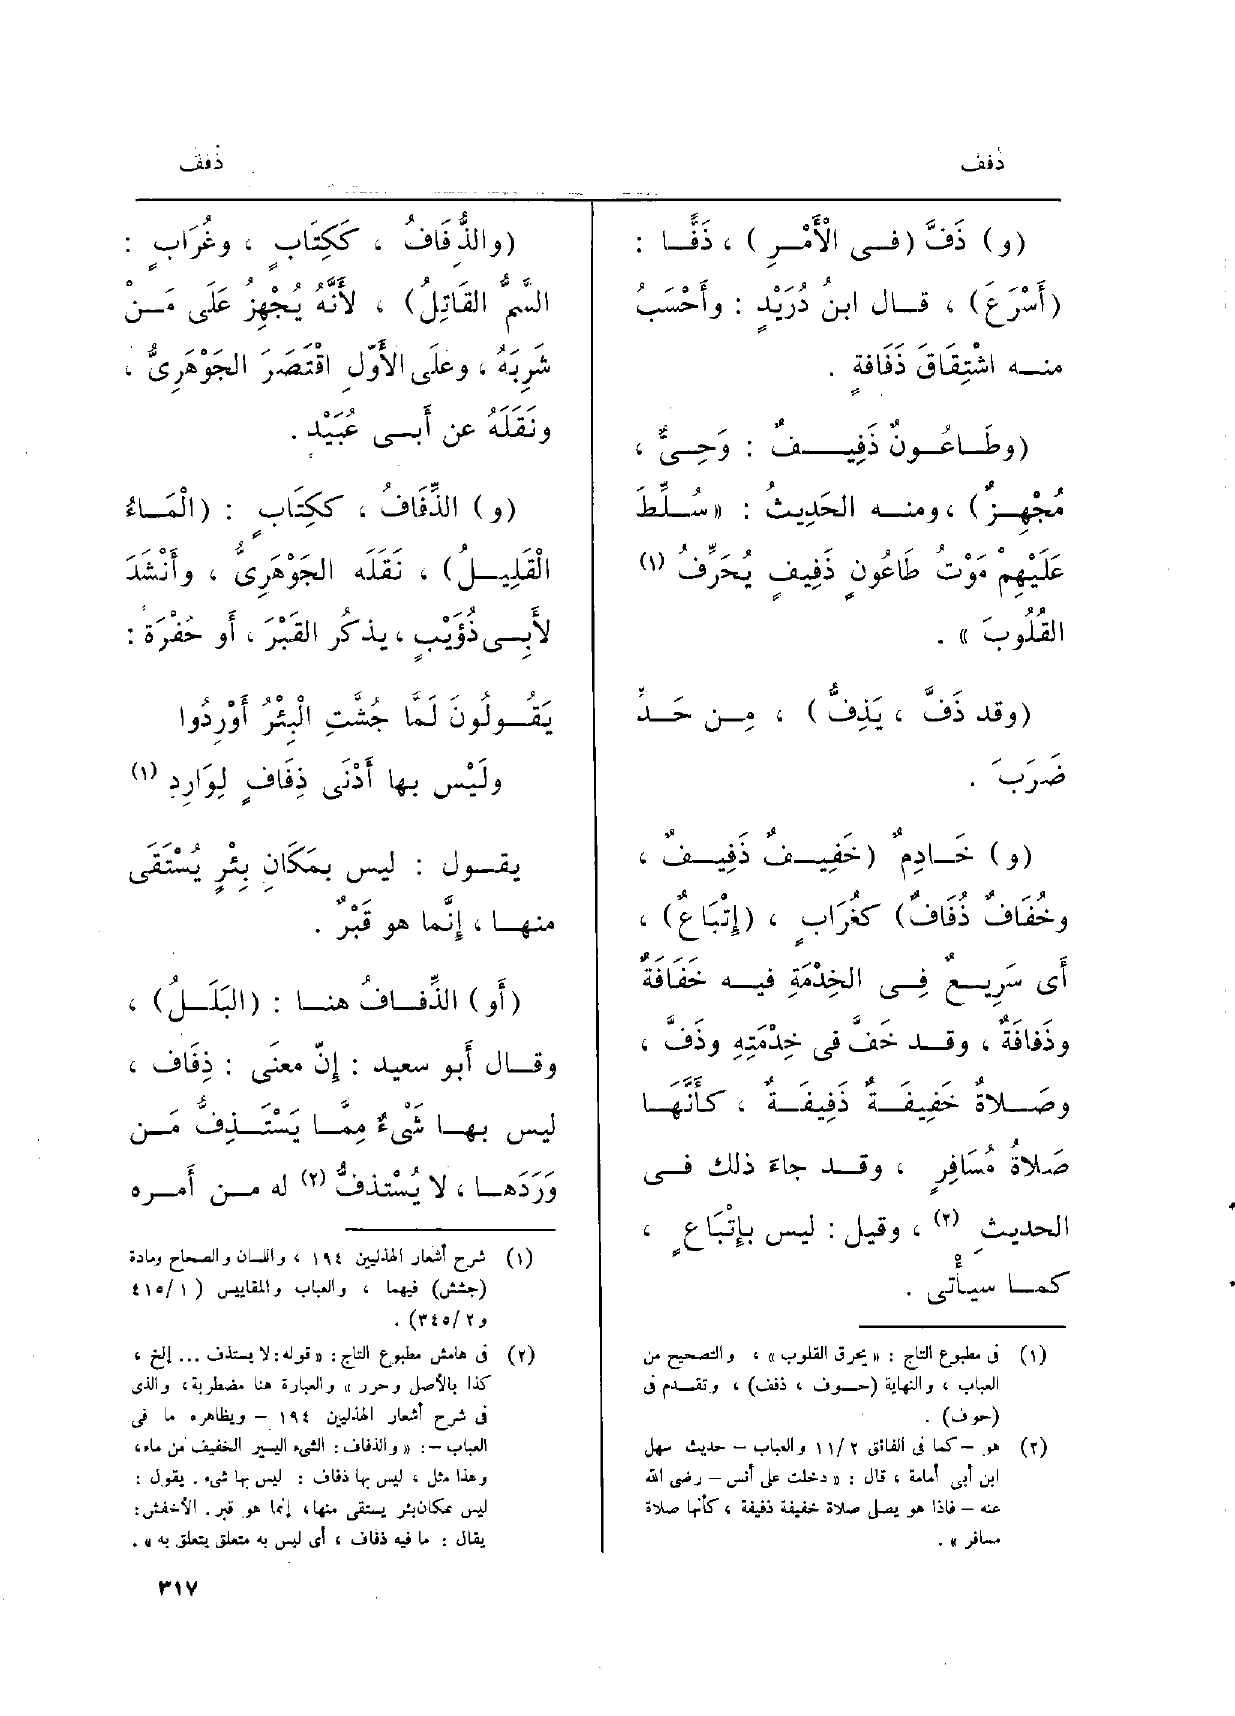 ذفف
ذفف
(و) ذَفَّ (فــى الْأَمْــرِ) ، ذَفًّــا :
(أَسْرَعَ) ، قــال ابنُ دُرَيْدٍ : وأَحْسَبُ
منــه اشْتِقَاقَ ذَفَافَةٍ .
(وطَــاعُــونٌ ذَفِيــــفٌ : وَحِــىٌّ ،
مُجْهِــزٌ) ، ومنــه الحَدِيثُ : «سُــلِّطَ
عَلَيْهِمْ مَوْتُ طَاعُونٍ ذَفِيفٍ يُحَرِّفُ (١)
القُلُوبَ » .
(وقد ذَفَّ ، يَذِفُّ) ، مِــن حَــدِّ
ضَرَبَ .
(و) خَــادِمٌ (خَفِيــفٌ ذَفِيــفٌ ،
وخُفَافٌ ذُفَافٌ) كغُرَابٍ ، (إِتْبَاعٌ) ،
أَى سَرِيــعٌ فِــى الخِدْمَةِ فيــه خَفَافَةٌ
وذَفافَةٌ ، وقــد خَفَّ فى خِدْمَتِهِ وذَفَّ ،
وصَــلاةٌ خَفِيفَــةٌ ذَفِيفَــةٌ ، كَأَنَّهَــا
صَلاةُ مُسَافِرٍ ، وقــد جاءَ ذلك فــى
الحديثِ (٢) ، وقيل : ليس بإِتْبَاعٍ ،
كمــا سيأْتى .
(١) فى مطبوع التاج : «يحرق القلوب» ، والتصحيح من
العباب ، والنهاية (حــوف ، ذفف) ، وتقــدم فى
(حوف) .
(٢) هو – كما فى الفائق ٢/ ١١ والعباب – حديث سهل
ابن أبى أمامة ، قال : «دخلت على أنس – رضى الله
عنه – فاذا هو يصل صلاة خفيفة ذفيفة ، كأنها صلاة
مسافر » .
(والذُّفَافُ ، كَكِتَابٍ ، وغُرَابٍ :
السَّمُّ القَاتِلُ) ، لأَنَّهُ يُجْهِزُ عَلَى مَــنْ
شَرِبَهُ ، وعلَى الأَوَّلِ اقْتَصَرَ الجَوْهَرِىُّ ،
ونَقَلَهُ عن أَبــى عُبَيْدٍ .
(و) الذِّفَافُ ، ككِتَابٍ : (الْمَــاءُ
الْقَلِيــلُ) ، نَقَلَه الجَوْهَرِىُّ ، وأَنْشَدَ
لأَبِــى ذُؤَيْبٍ ، يذكُر القَبْرَ ، أَو حُفْرَةً :
يَقُــولُونَ لَمَّا جُشَّتِ الْبِئْرُ أَوْرِدُوا
ولَيْس بها أَدْنَى ذِفَافٍ لِوَارِدِ (١)
يقــول : ليس بِمَكَانِ بِئْرٍ يُسْتَقَى
منهــا ، إِنَّما هو قَبْرٌ .
(أَو) الذِّفــافُ هنــا : (البَلَــلُ) ،
وقــال أَبو سعيد : إِنَّ معنَى : ذِفَاف ،
ليس بهــا شَىْءٌ مِمَّــا يَسْتَــذِفُّ مَــن
وَرَدَهــا ، لا يُسْتذفُّ (٢) له مــن أَمــره
(١) شرح أشعار الهذليين ١٩٤ ، واللسان والصحاح ومادة
(جشش) فيهما ، والعباب والمقاييس (١ /٤١٥
و٢ /٣٤٥) .
(٢) فى هامش مطبوع التاج : «قوله : لا يستذف ... إلخ ،
كذا بالأصل وحرر » والعبارة هنا مضطربة ، والذى
فى شرح أشعار الهذليين ١٩٤ – ويظاهره ما فى
العباب – : «والذفاف : الشىء اليسير الخفيف من ماء ،
وهذا مثل ، ليس بها ذفاف : ليس بها شىء . يقول :
ليس بمكان بئر يستقى منها ، إنما هو قبر . الأخفش :
يقال : ما فيه ذفاف ، أى ليس به متعلق يتعلق به » .
٣١٧